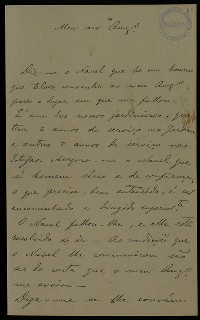 Meu caro Amgo
Diz-me o Naval que ha um homem
que talvez convenha ao meu Amgo
para o logar em que me fallou.
É um dos nossos jardineiros, que
tem 2 annos de serviço no Jardim
e outros 2 annos de serviço nas
Estufas. Assegura-me o Naval que
é homem sério e de confiança,
o que precisa, bem entendido, é ser
encaminhado e dirigido superiorte.
O Naval fallou-lhe, e elle está
resolvido a ir. As condições que
o Naval lhe communicou são
as da carta que o meu Amgo
me enviou.
Diga-me se lhe convém